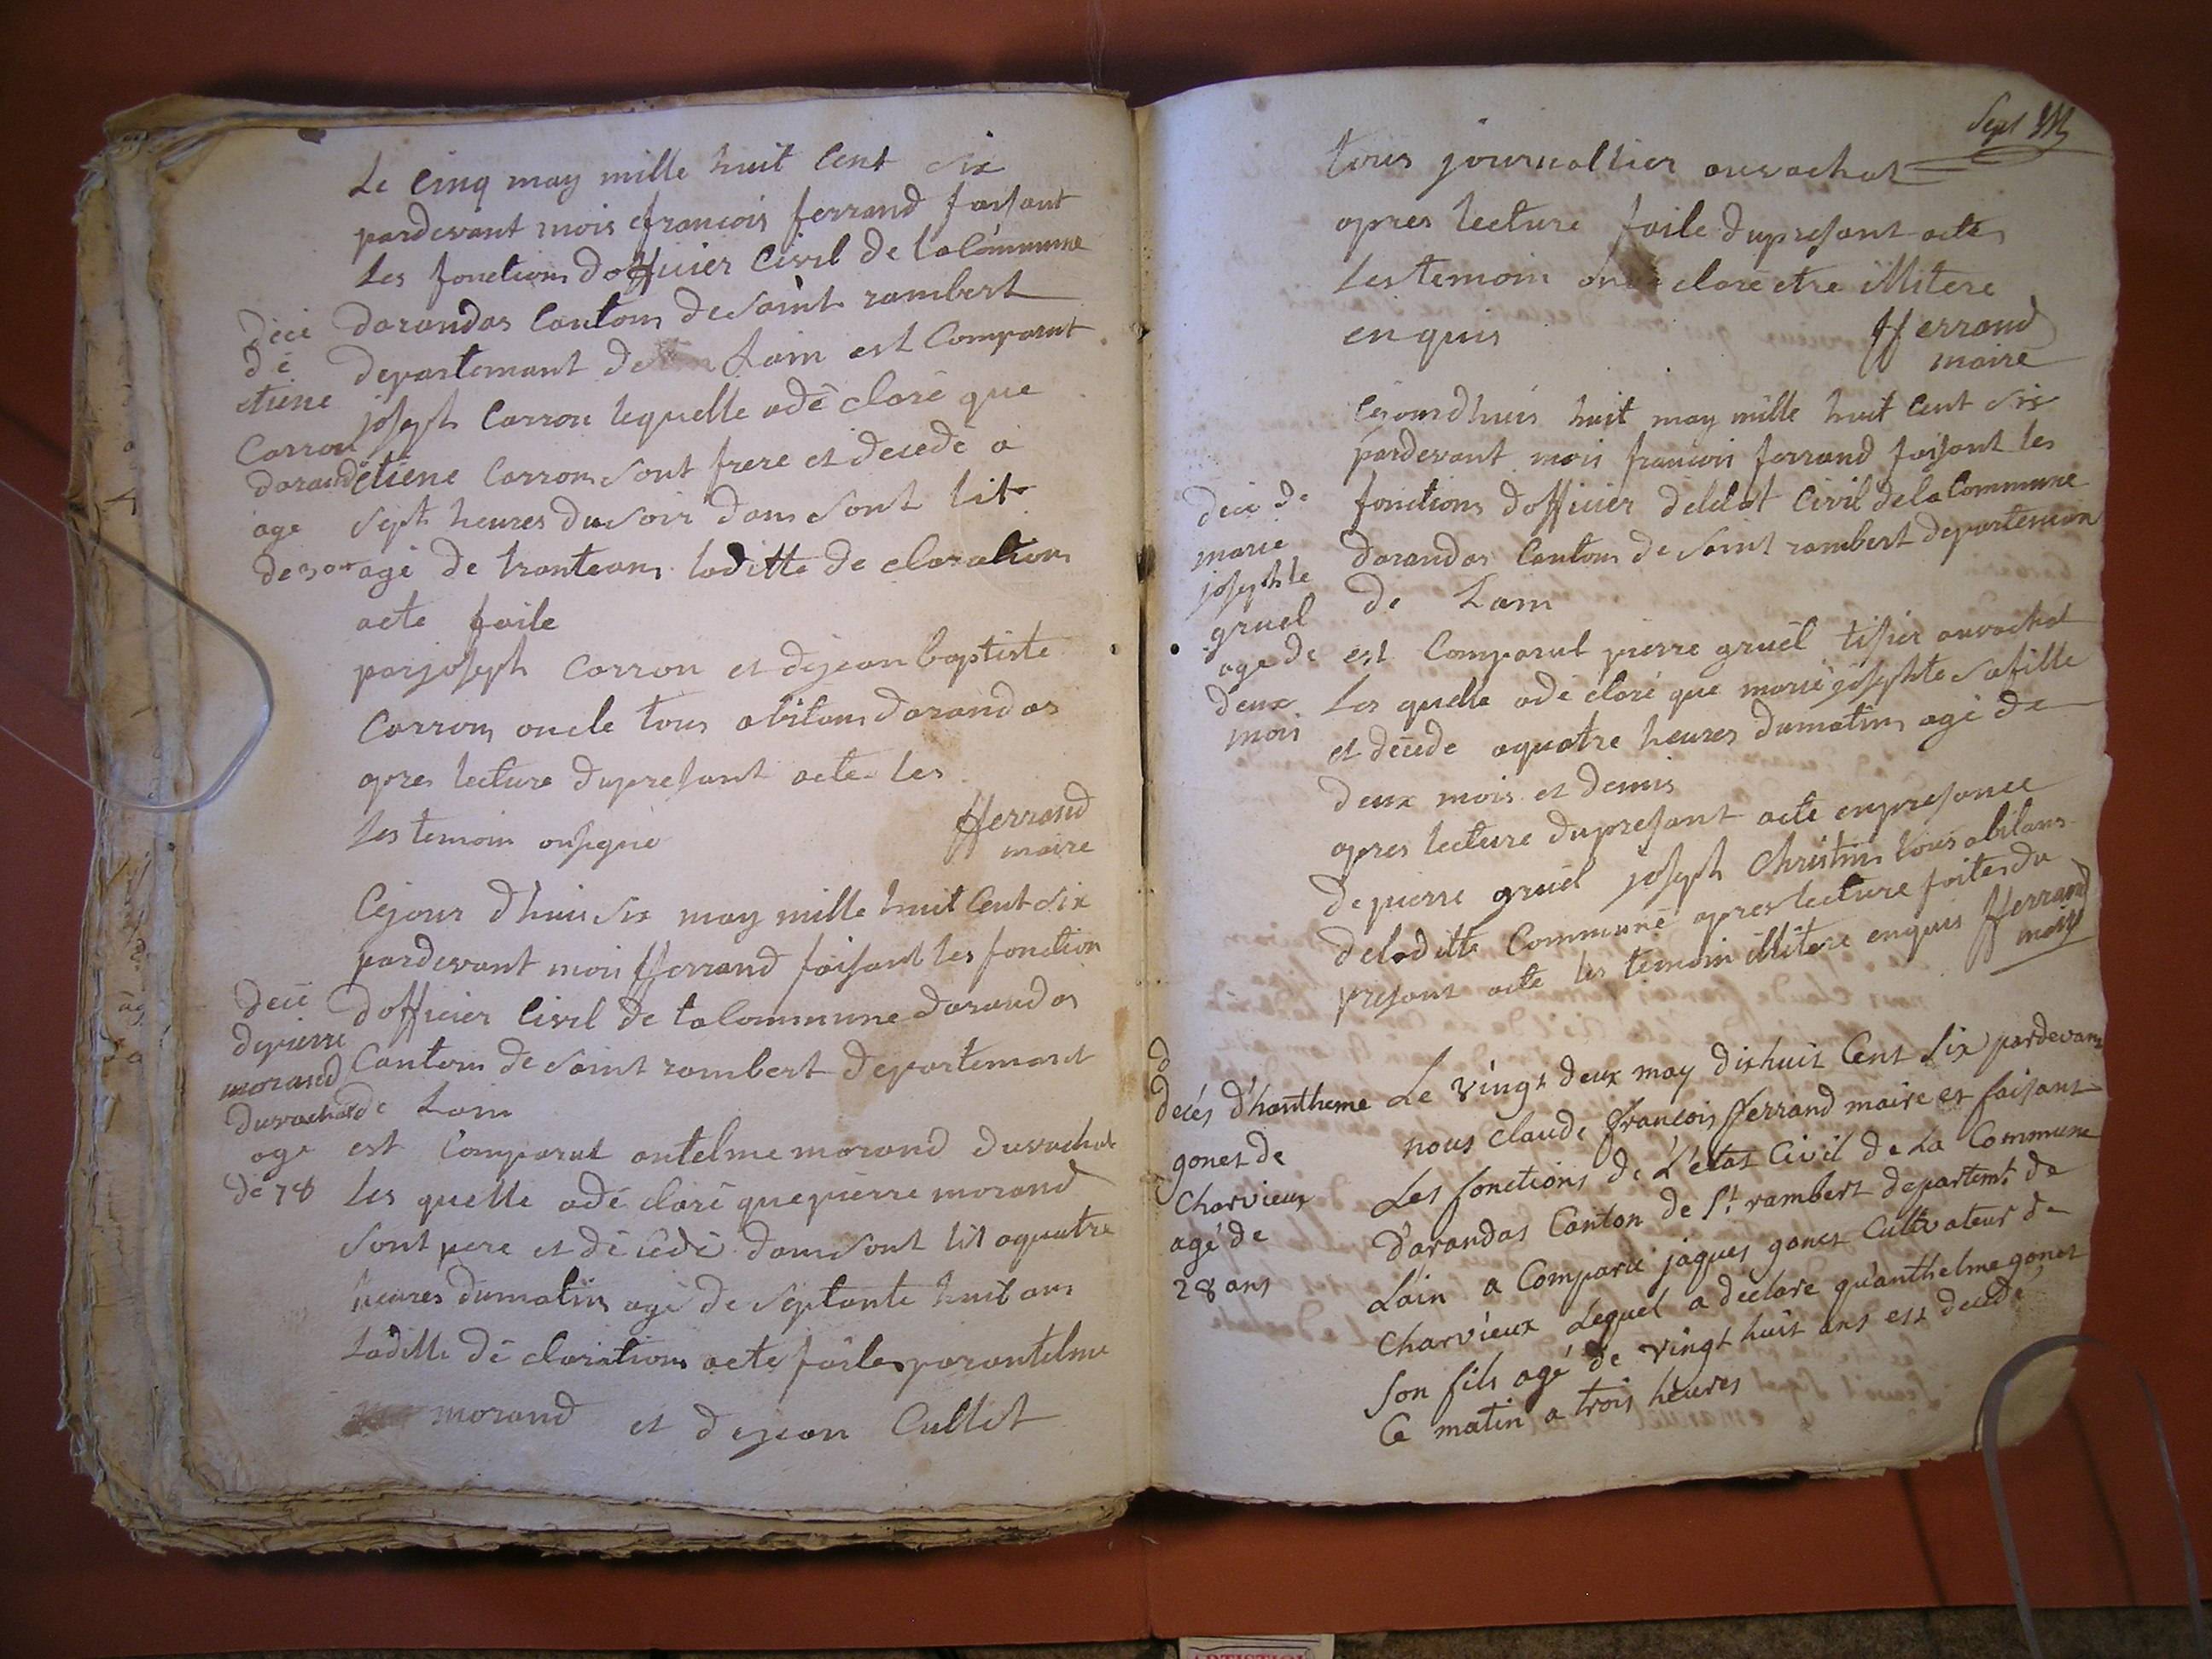 Le cinq may mille huit Cent six
pardevant mois francois ferrand faisant
les fonctions dofficier Civil de la Commune
darandas Cantons de saint rambert
departemant de Lain est Comparut
joseph Carron lequelle adé claré que
étiene Carron sont frere et decedé a
sept heures du soir dans sont lit
agé de tranteans laditte de claration
acte faite
par joseph Carron et dejean baptiste
Carron oncle tous abitans darandas
apres lecture dupresant acte les
les temoin onsigné fferrand
maire
déce
dé
etiene
Carron
darand
age
de 30 an
Cejour dhuis six may mille huit Cent six
pardevant moi fferrand faisant les fonction
dofficier Civil de la Commune darandas
Cantons de saint rambert departemant
de Lain
est Comparut antelme morand duvachat
les quelle adé claré que pierre morand
sont pere et dé cédé dans sont lit aquatre
heures dumatin agé de septante huit ans
Laditte dé claration acte faite parantelme
morand et dejean Cullet
decé
depierre
morand
duvachat
age
de 78
Sept
tous journallier auvachat
apres lecture faite dupresant acte
les temoin on dé claré etre illitere
enquis fferrand
maire
Cejourdhuis huit may mille huit Cent six
pardevant mois francois ferrand faisant les
fonctions dofficier deletat Civil dela Commune
darandas Cantons de saint rambert departemant
de Lain
est Comparut pierre gruel tisier auvachat
Les quelle adé claré que marie josephte safille
et décede aquatre heures dumatin agé de
deux mois et demis
apres lecture dupresant acte enpresance
de pierre gruel joseph Christin tous abitans
deladitte Commune apres lecture faites du
presant acte les temoin illitere enquis fferrand
maire
decé de
marie
josephte
gruel
age de
deux
mois
d
decés d'hantheme
gonet de
Charvieux
agé de
28 ans
Le vingt deux may dixhuit Cent six pardevant
nous claude francois fferrand maire et faisant
Les fonctions de L'etat Civil de La Commune
d'arandas Canton de St rambert departemt de
Lain a Comparu jaques gonet Cultivateur de
Charvieux Lequel a declare qu'anthelme gonet
son fils agé de vingt huit ans est decedé
Ce matin a trois heures